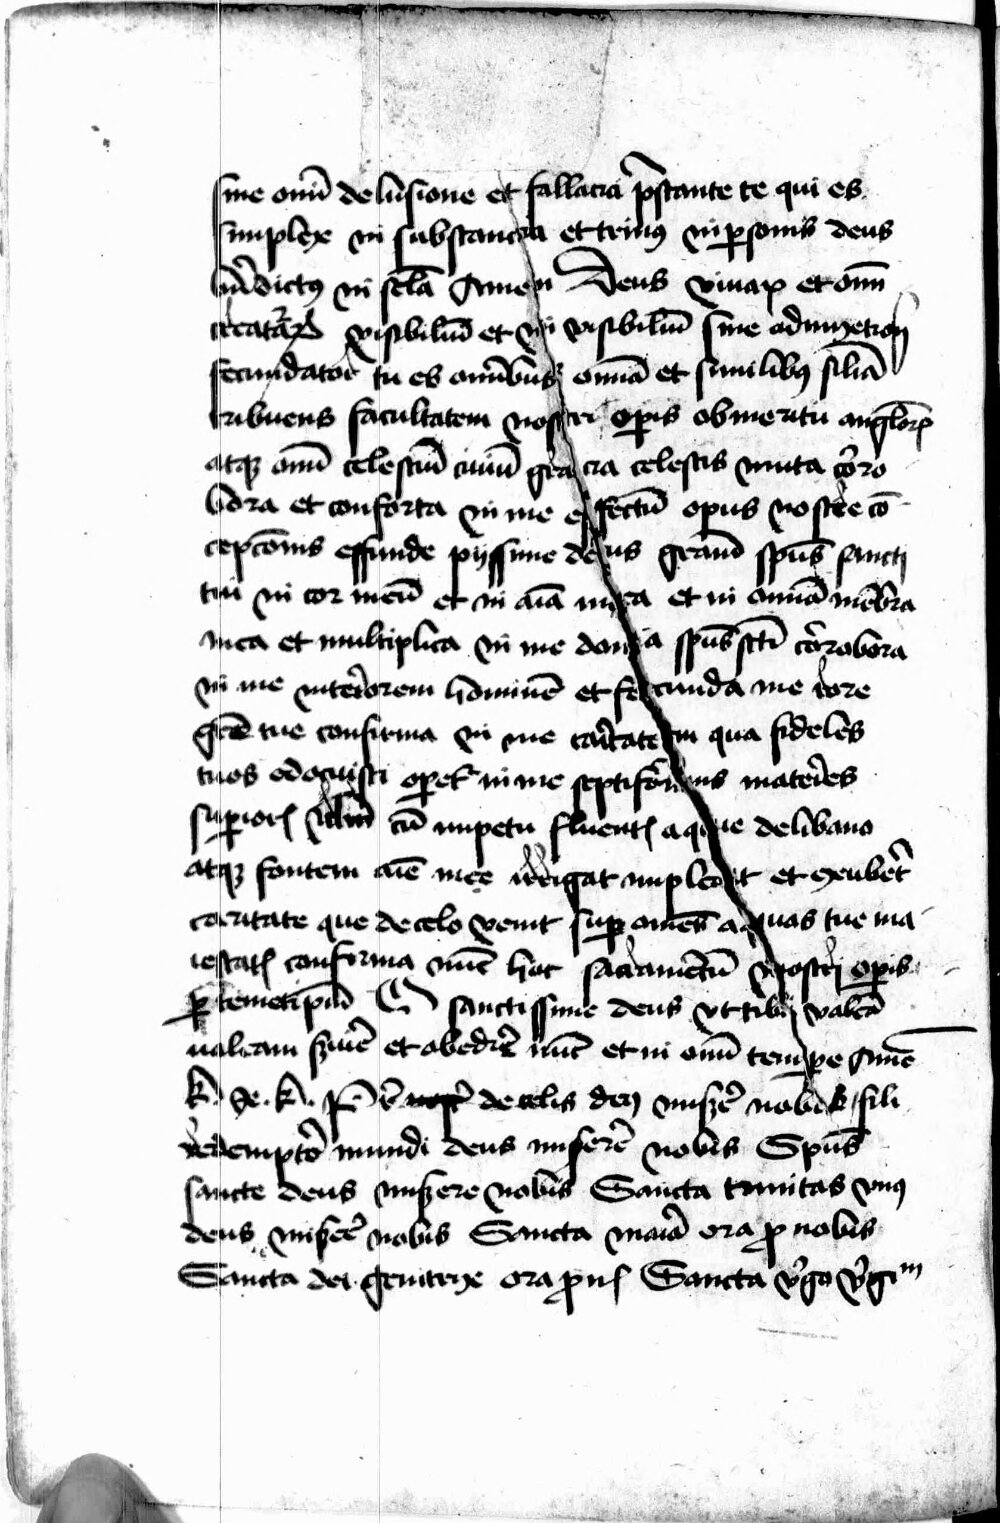 sine omni delusione et fallacia p̄stante te qui es
simplex in substancia et trinus in personis deus
bn̄dictus in sclā Amen Deus viuax et omn̄
creatar̄ visibiliū et in visibiliū sine admixtion̄
fecundator tu es omnibus omnia et similibus siliā
tribuens facultatem nostri operis ob meritu anglor̄
atque omnī celestiū ciuiū gracia celestis inuita cor̄o
bora et conforta in me effectū opus nostre cō
cepcōnis effunde pyssime deus gratiā spūs sancti
tui in cor meū et in aīa mea et in omnia mēbra
mea et multiplica in me dona spūs scti cor̄robora
in me interiorem hominē et fecunda me rore
grē tue confirma in me caritatem qua fideles
tuos edocuisti operet in me septiformis materies
superior cū impetu fluent aque de libano
atque fontem aīe mee irrigat impleat et exuber̄t
caritate que de celo venit super omēs aquas tue ma
iestatis conforma nūc hoc sacramētū nostri operis
per temetip̄m O sanctissime deus vt tibi valeā
ualeam seruire et obedire nūc et in omnī tempore Amē
k. xe. k. de celis deus miserē nobis fili
redemptor mundi deus miserē nobis Spūs
sancte deus miserere nobis Sancta trinitas vnus
deus miserē nobis Sancta maria ora pro nobis
Sancta dei genitrix ora pro nob Sancta v̄go v̄gim